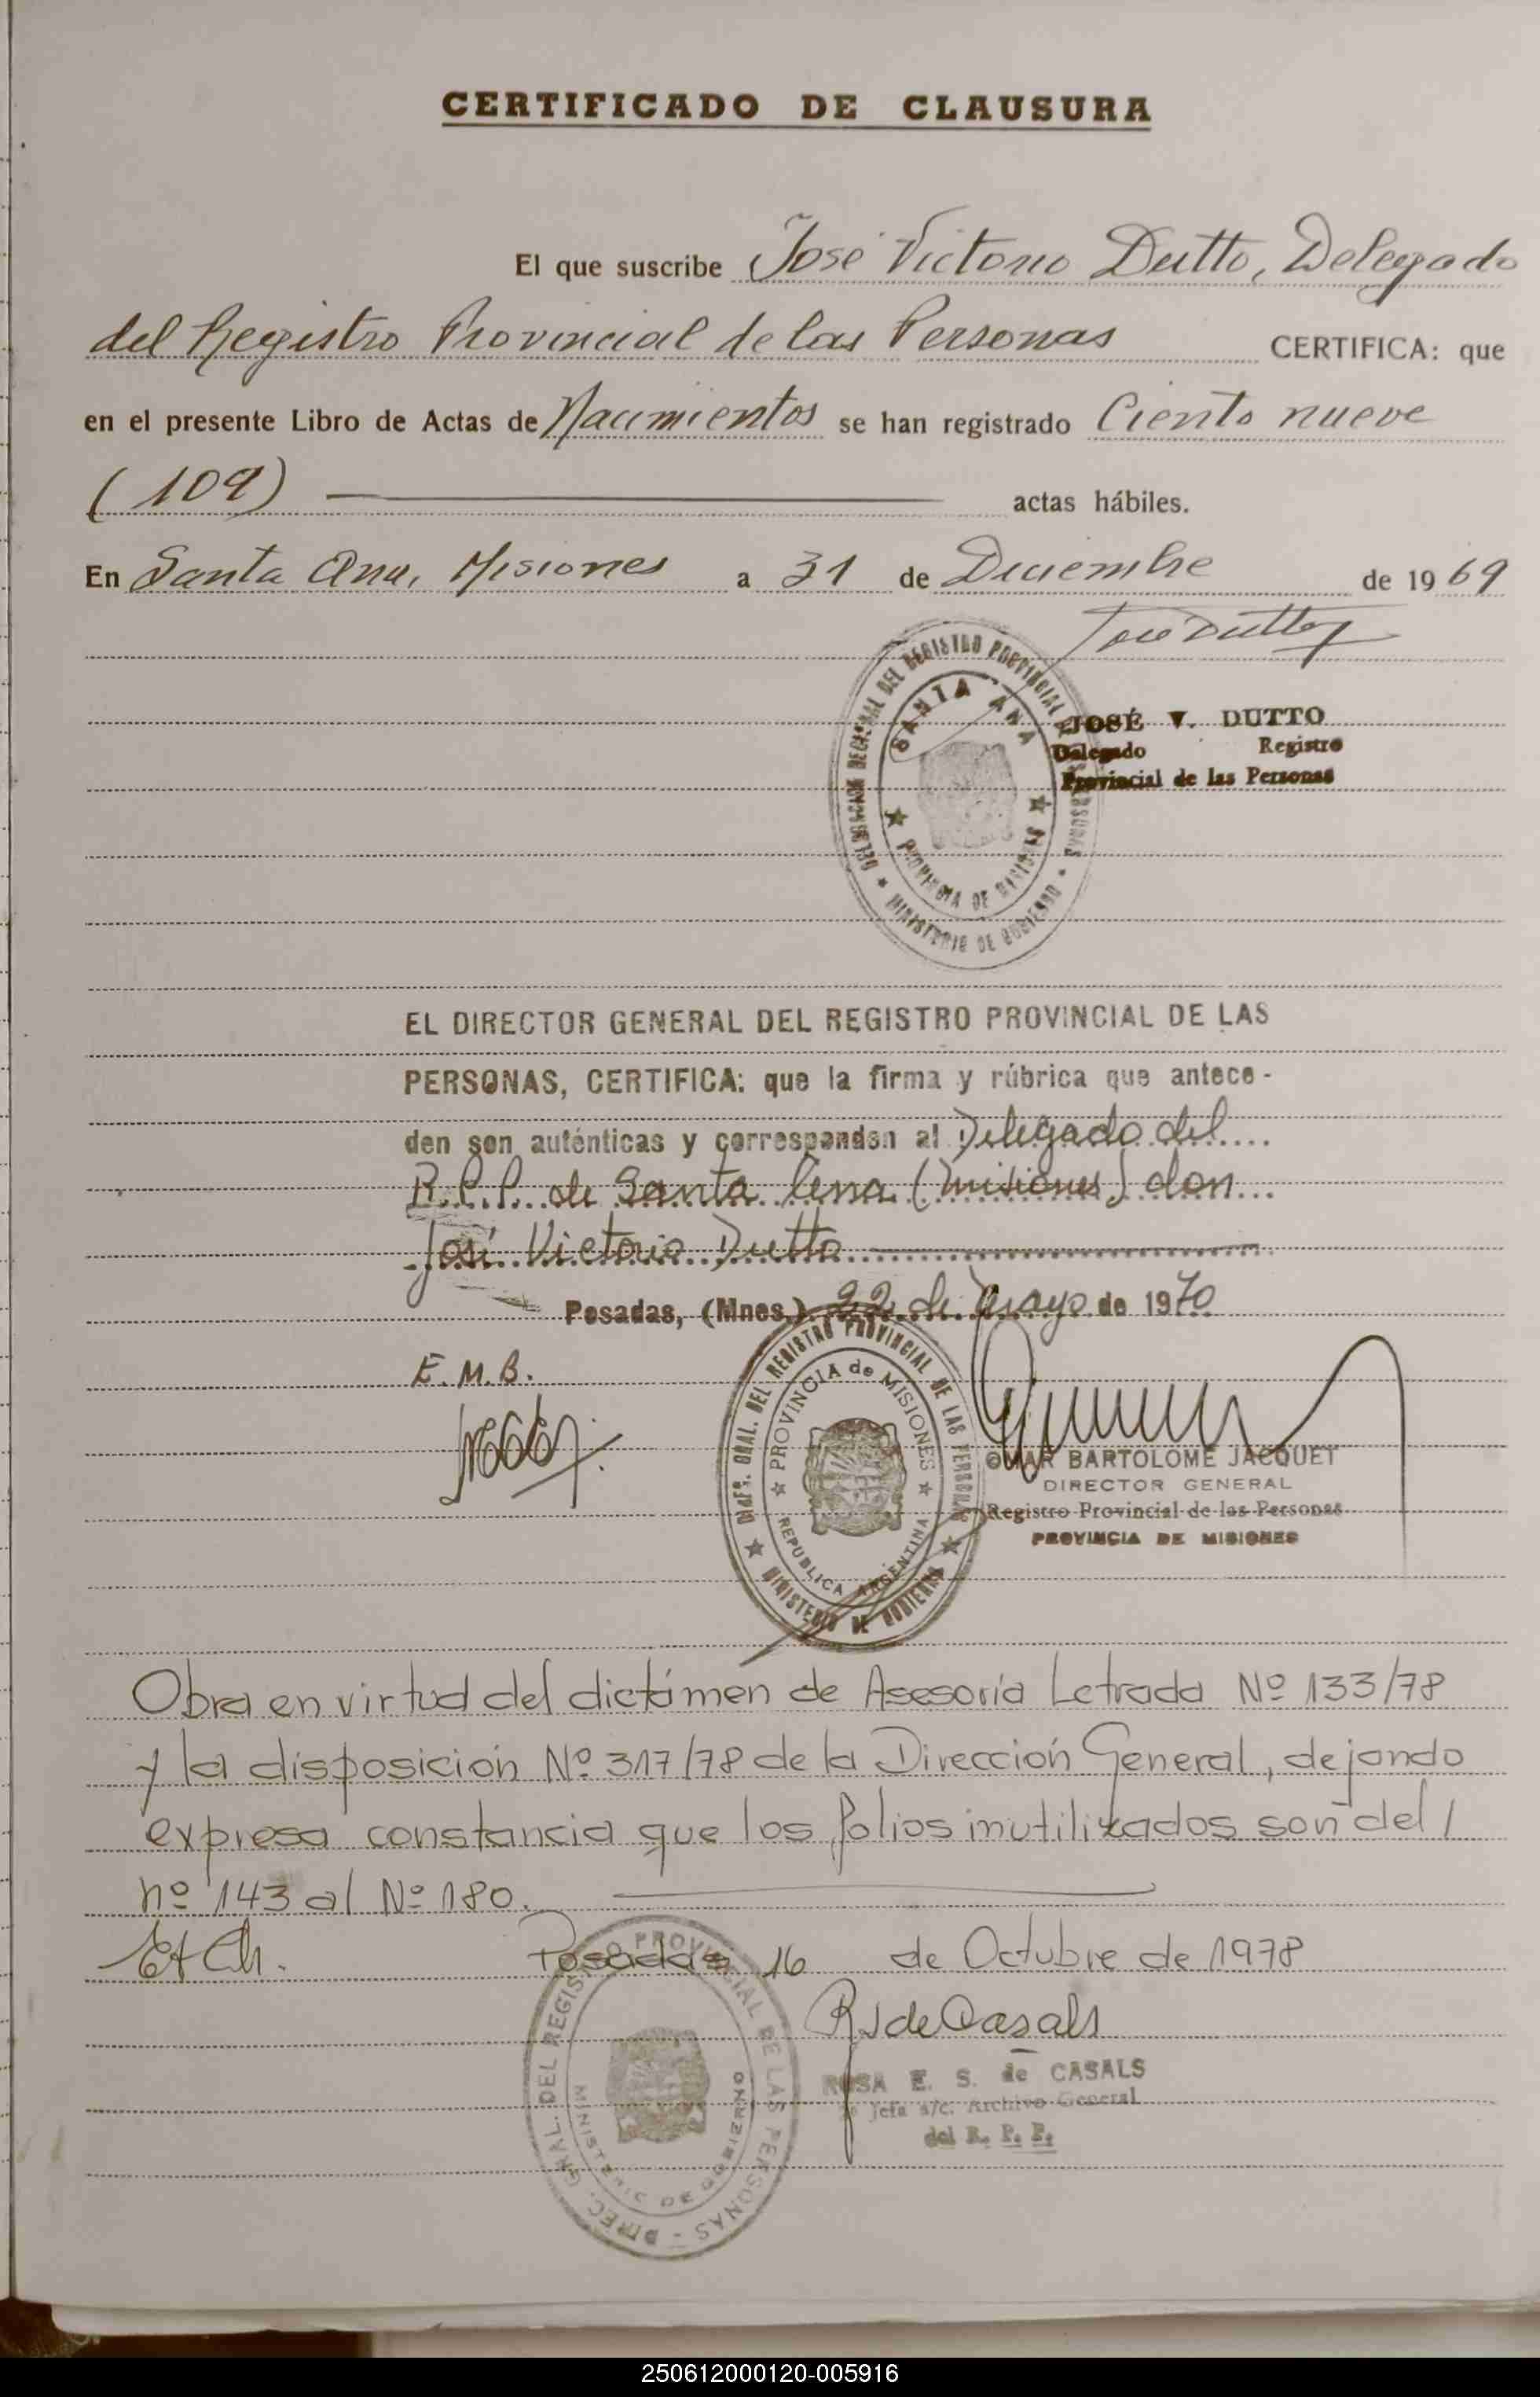 CERTIFICADO DE CLAUSURA
El que suscribe José Victorio Dutto, Delegado
del Registro Provincial de las Personas CERTIFICA: que
en el presente Libro de Actas de Nacimientos se han registrado Ciento nueve
(109) actas hábiles.
En Santa Ana, Misiones a 31 de Diciembre de 1969
José Dutto
DELEGACION REGIONAL DEL REGISTRO PROVINCIAL DE LAS PERSONAS
SANTA ANA
PROVINCIA DE MISIONES
MINISTERIO DE GOBIERNO
JOSÉ V. DUTTO
Delegado Registro
Provincial de las Personas
EL DIRECTOR GENERAL DEL REGISTRO PROVINCIAL DE LAS
PERSONAS, CERTIFICA: que la firma y rúbrica que antece-
den son auténticas y corresponden al Delegado del
R.P.P. de Santa Ana (Misiones) don
José Victorio Dutto
Posadas, (Mnes.) 22 de Mayo de 1970
E.M.B.
GRAL. DEL REGISTRO PROVINCIAL DE LAS PERSONAS
PROVINCIA de MISIONES
REPUBLICA ARGENTINA
MINISTERIO DE GOBIERNO
OMAR BARTOLOME JACQUET
DIRECTOR GENERAL
Registro Provincial de las Personas
PROVINCIA DE MISIONES
Obra en virtud del dictámen de Asesoría Letrada Nº 133/78
y la disposición Nº 317/78 de la Dirección General, dejando
expresa constancia que los folios inutilizados son del /
nº 143 al Nº 180.
Posadas 16 de Octubre de 1978
RSdeCasals
DIREC. GRAL. DEL REGISTRO PROVINCIAL DE LAS PERSONAS -
MINISTERIO DE GOBIERNO
ROSA E. S. de CASALS
Jefa a/c. Archivo General
del R. P. P.
250612000120-005916